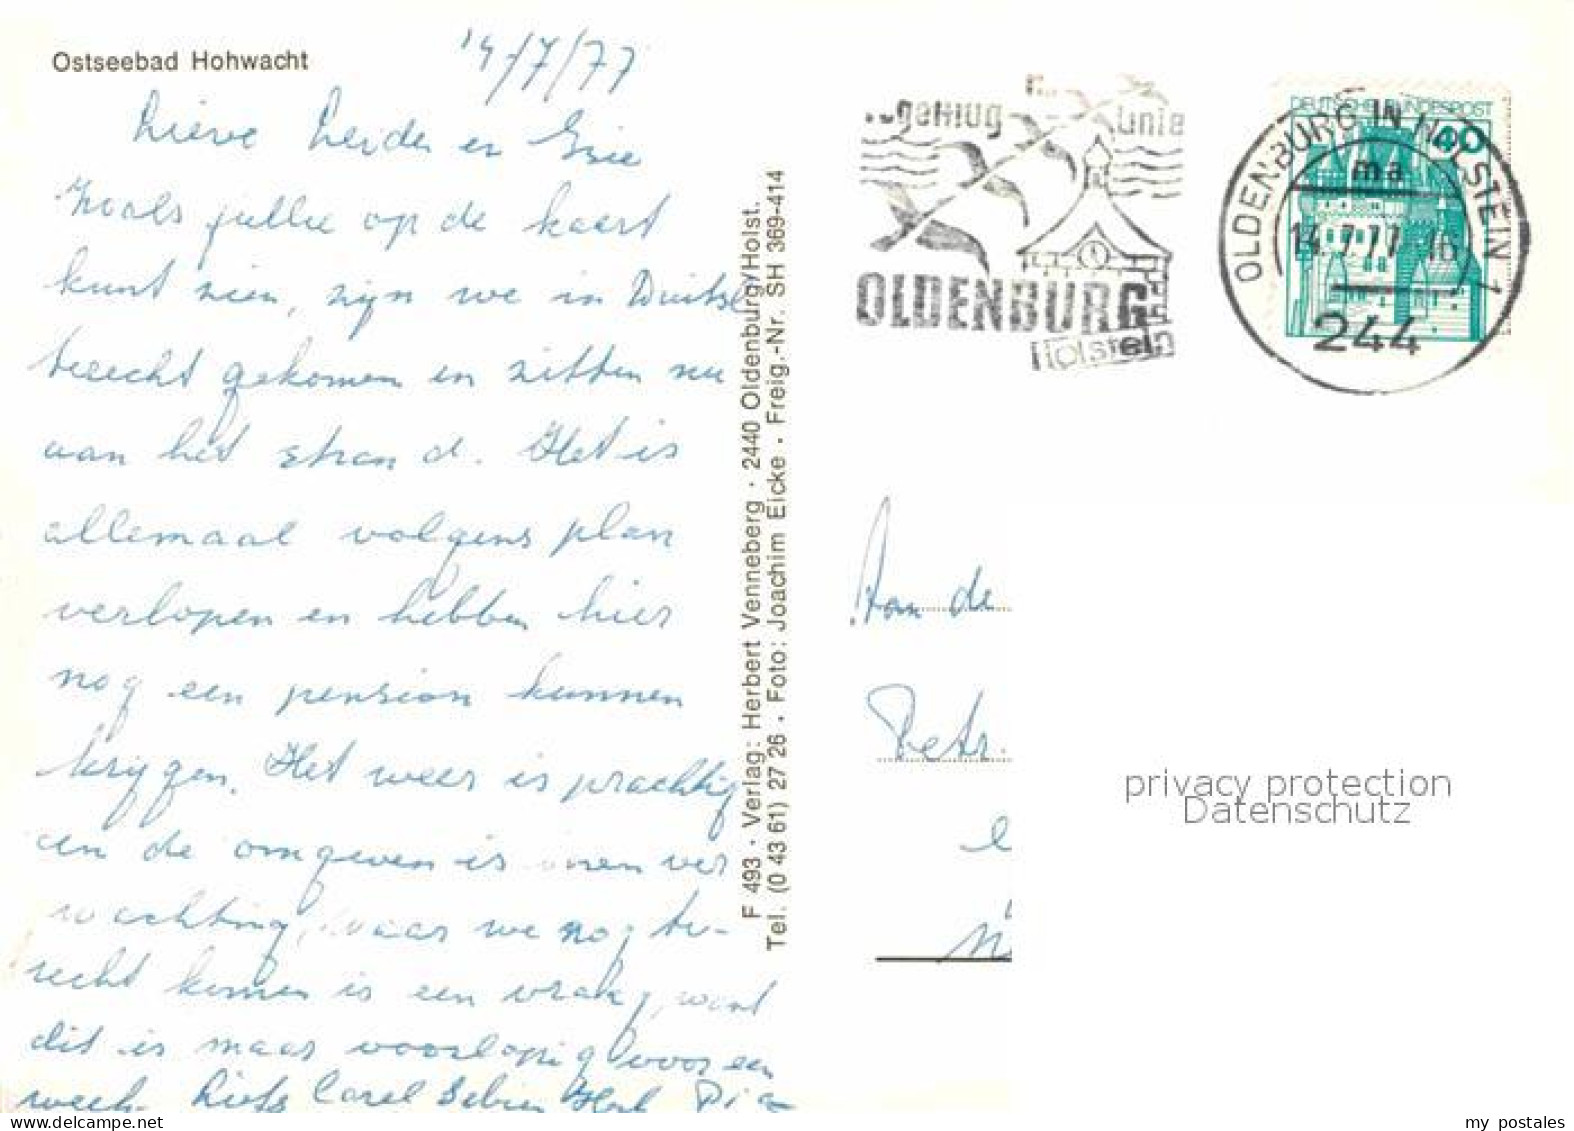 Ostseebad Hohwacht
14/7/77
Lieve Leider en
Zoals jullie op de kaart
kunt zien, zijn we in Duitsl
terecht gekomen en zitten nu
aan het strand. Het is
allemaal volgens plan
verlopen en hebben hier
nog een pension kunnen
krijgen. Het weer is prachtig
en de omgeven is boven ver
wachting, waar we nog te-
recht komen is een vraag, want
dit is maar voorlopig voor een
week. Liefs Carel
F 493 · Verlag: Herbert Venneberg · 2440 Oldenburg/Holst.
Tel. (0 43 61) 27 26 . Foto: Joachim Eicke . Freig.-Nr. SH 369-414
Vogelflug Linie
OLDENBURG
Holstein
DEUTSCHE BUNDESPOST
40
OLDENBURG IN HOLSTEIN 1
ma
14.7.77-16
244
Aan de
Petr.
e
privacy protection
Datenschutz
my postales